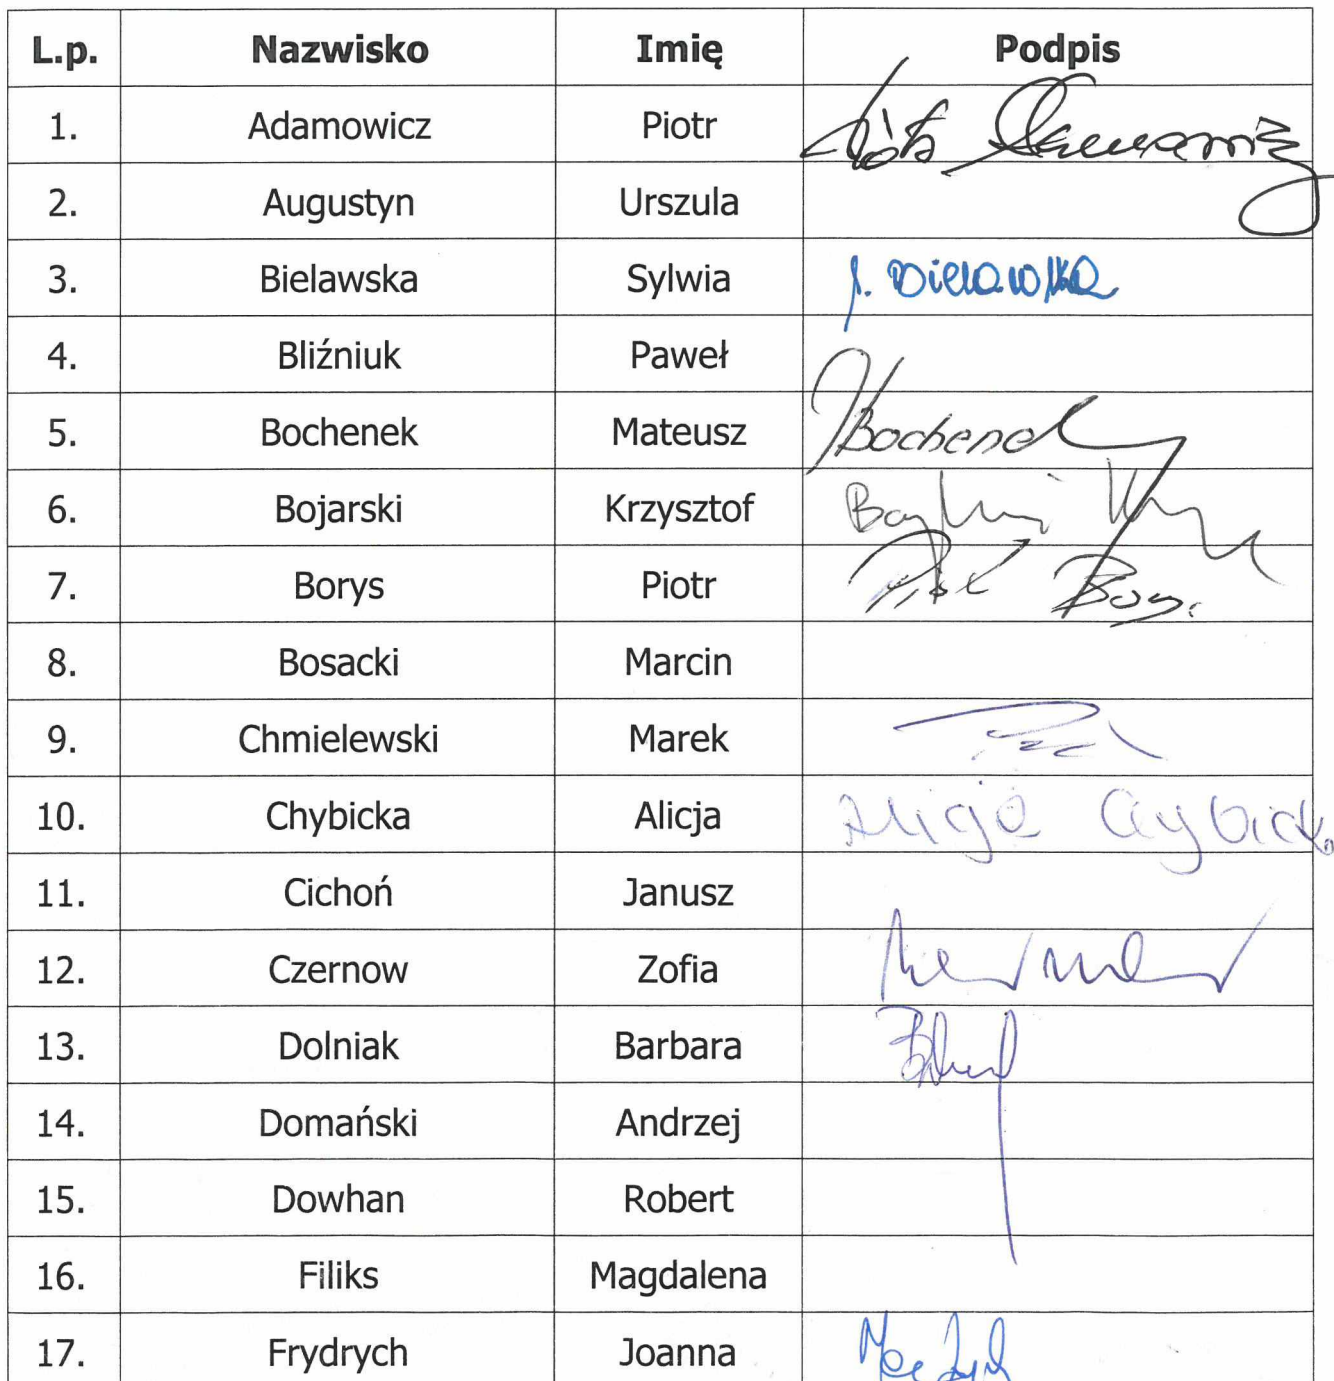 L.p. Nazwisko Imię Podpis
1. Adamowicz Piotr Piotr Adamowicz
2. Augustyn Urszula
3. Bielawska Sylwia S. Bielawska
4. Bliźniuk Paweł
5. Bochenek Mateusz MBochenek
6. Bojarski Krzysztof Bojarski
7. Borys Piotr Piotr Borys
8. Bosacki Marcin
9. Chmielewski Marek
10. Chybicka Alicja Alicja Chybicka
11. Cichoń Janusz
12. Czernow Zofia
13. Dolniak Barbara
14. Domański Andrzej
15. Dowhan Robert
16. Filiks Magdalena
17. Frydrych Joanna